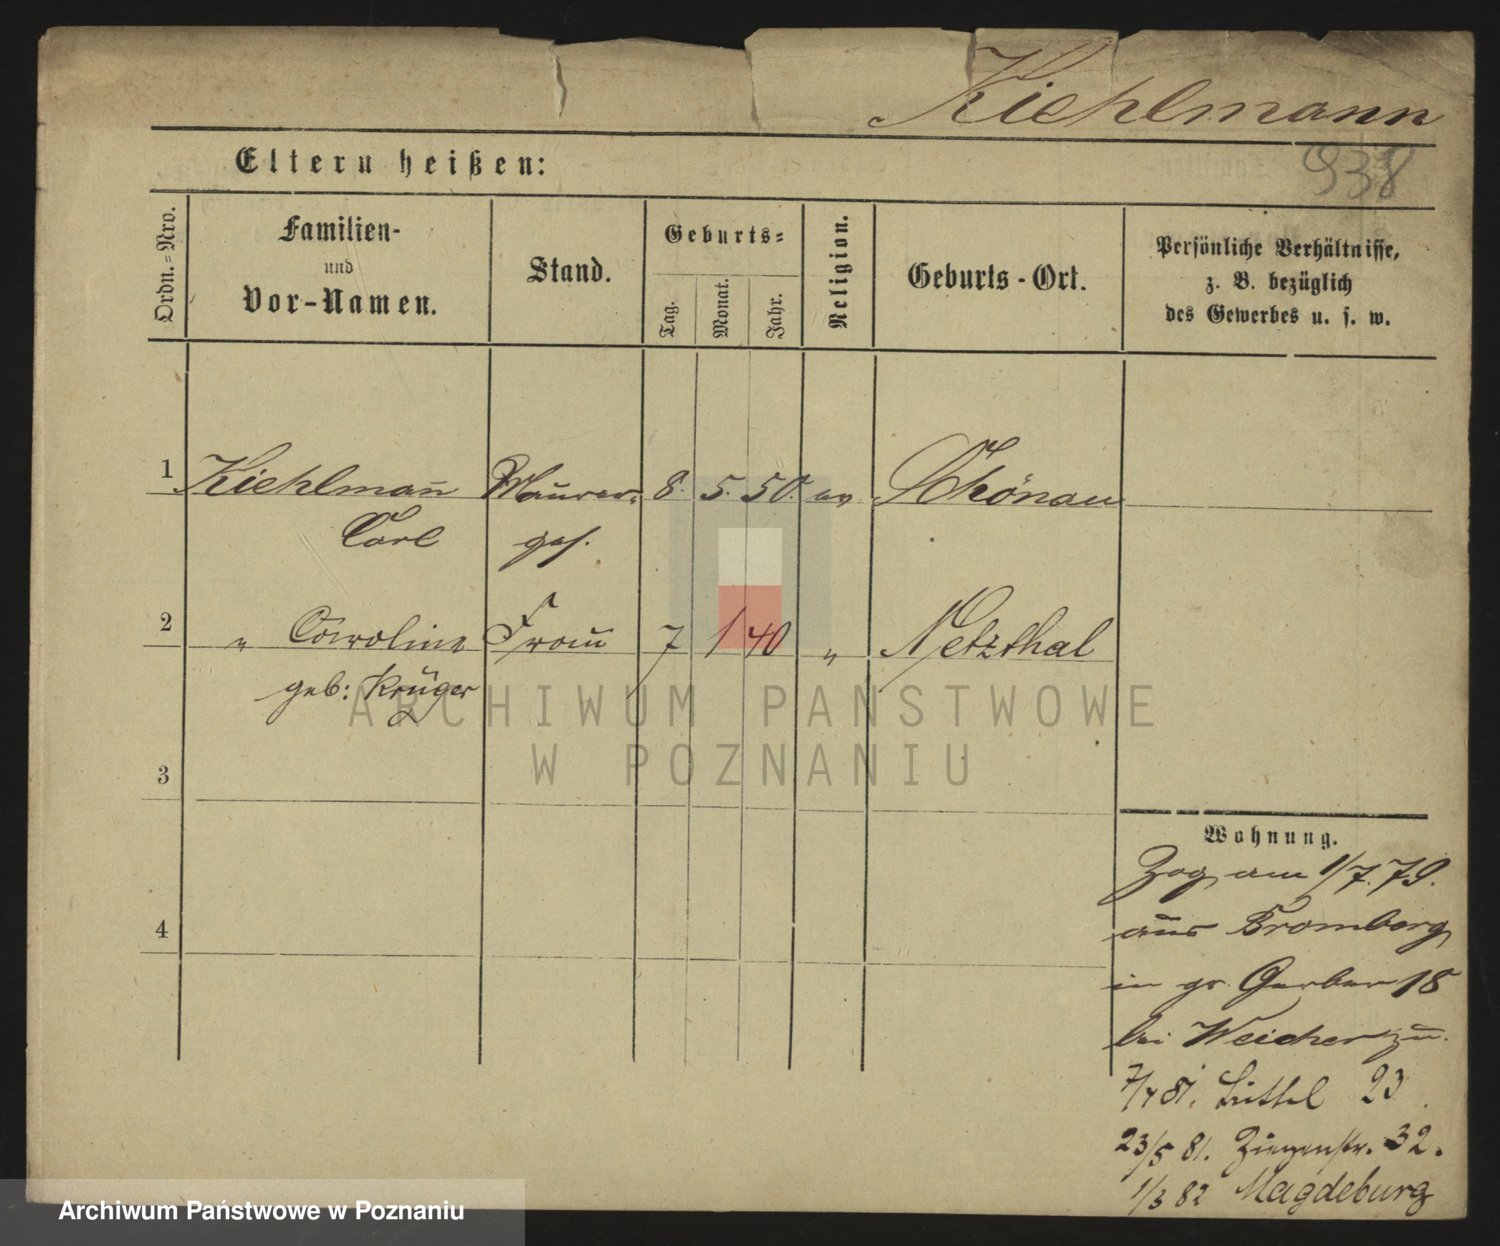 Kiehlmann
938
Eltern heißen:
Ordn.=Nro.
Familien-
und
Vor-Namen.
Stand.
Geburts=
Tag.
Monat.
Jahr.
Religion.
Geburts-Ort.
Persönliche Verhältnisse,
z. B. bezüglich
des Gewerbes u. s. w.
1 Kiehlman̄ Maurer= 8. 5. 50. ev Schönau
Carl ges.
2 " Caroline Frau 7 1 40 " Netzthal
geb: Krüger
3
4
Wohnung.
Zog am 1/7.79.
aus Bromberg
in gr. Gerber 18
bei Weicher zu.
7/4 81. Büttel 23
23/5 81. Ziegenstr. 32.
1/3 82 Magdeburg
ARCHIWUM PAŃSTWOWE
W POZNANIU
Archiwum Państwowe w Poznaniu